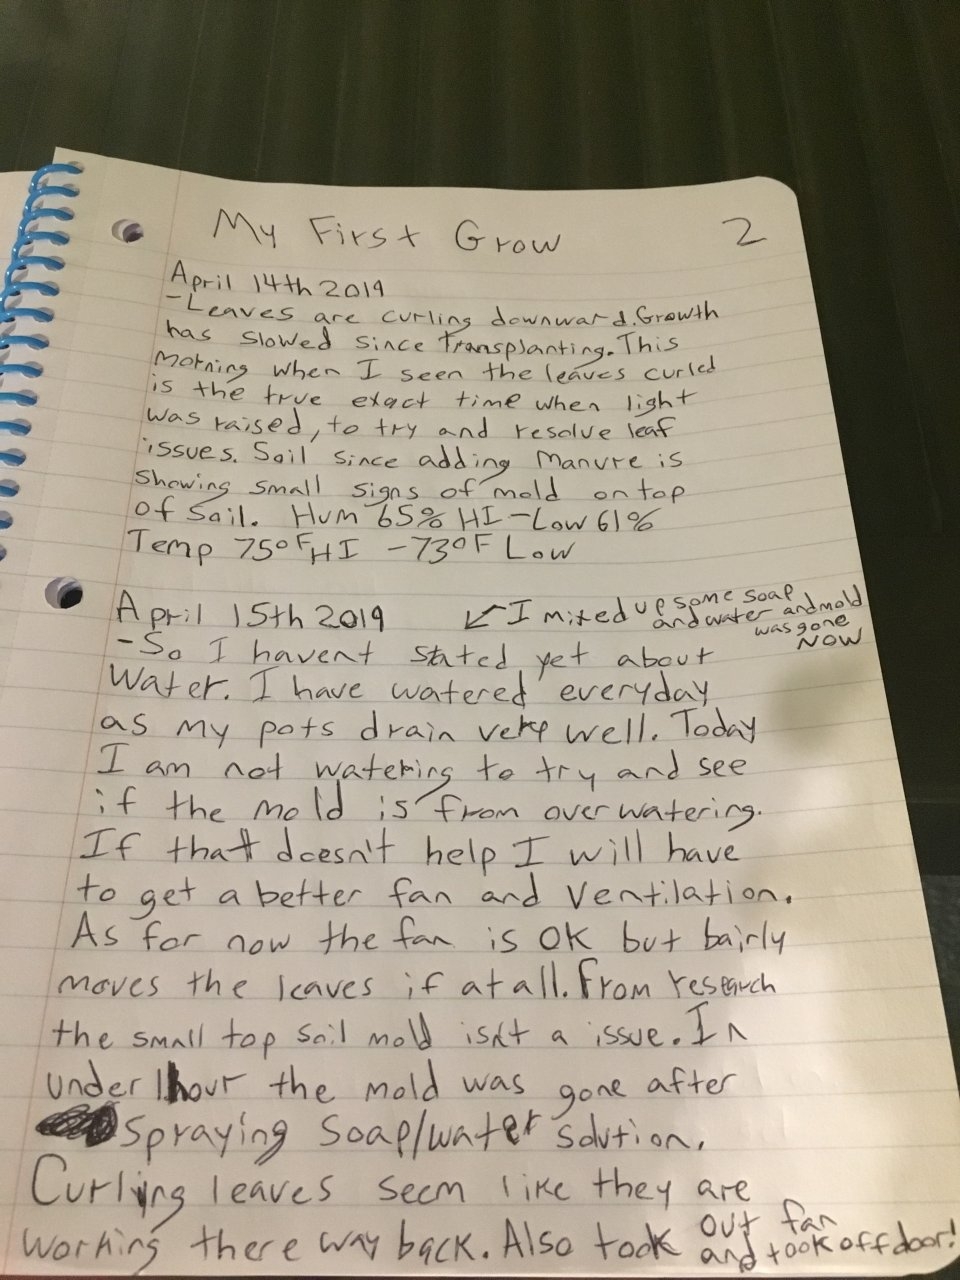 My First Grow 2
April 14th 2019
-Leaves are curling downward. Growth
has slowed since Transplanting. This
Morning when I seen the leaves curled
is the true exact time when light
was raised, to try and resolve leaf
issues. Soil since adding Manure is
showing small signs of mold on top
of Soil. Hum 65% HI - Low 61%
Temp 75°F HI - 73°F Low
April 15th 2019 ↙ I mixed up some soap
and water and mold
was gone
NOW
-So I havent stated yet about
Water. I have watered everyday
as my pots drain very well. Today
I am not watering to try and see
if the mold is from over watering.
If that doesn't help I will have
to get a better fan and Ventilation.
As for now the fan is OK but bairly
moves the leaves if at all. From research
the small top soil mold isn't a issue. In
under 1 hour the mold was gone after
Spraying Soap/water solution.
Curling leaves seem like they are
working there way back. Also took out fan
and took off door!